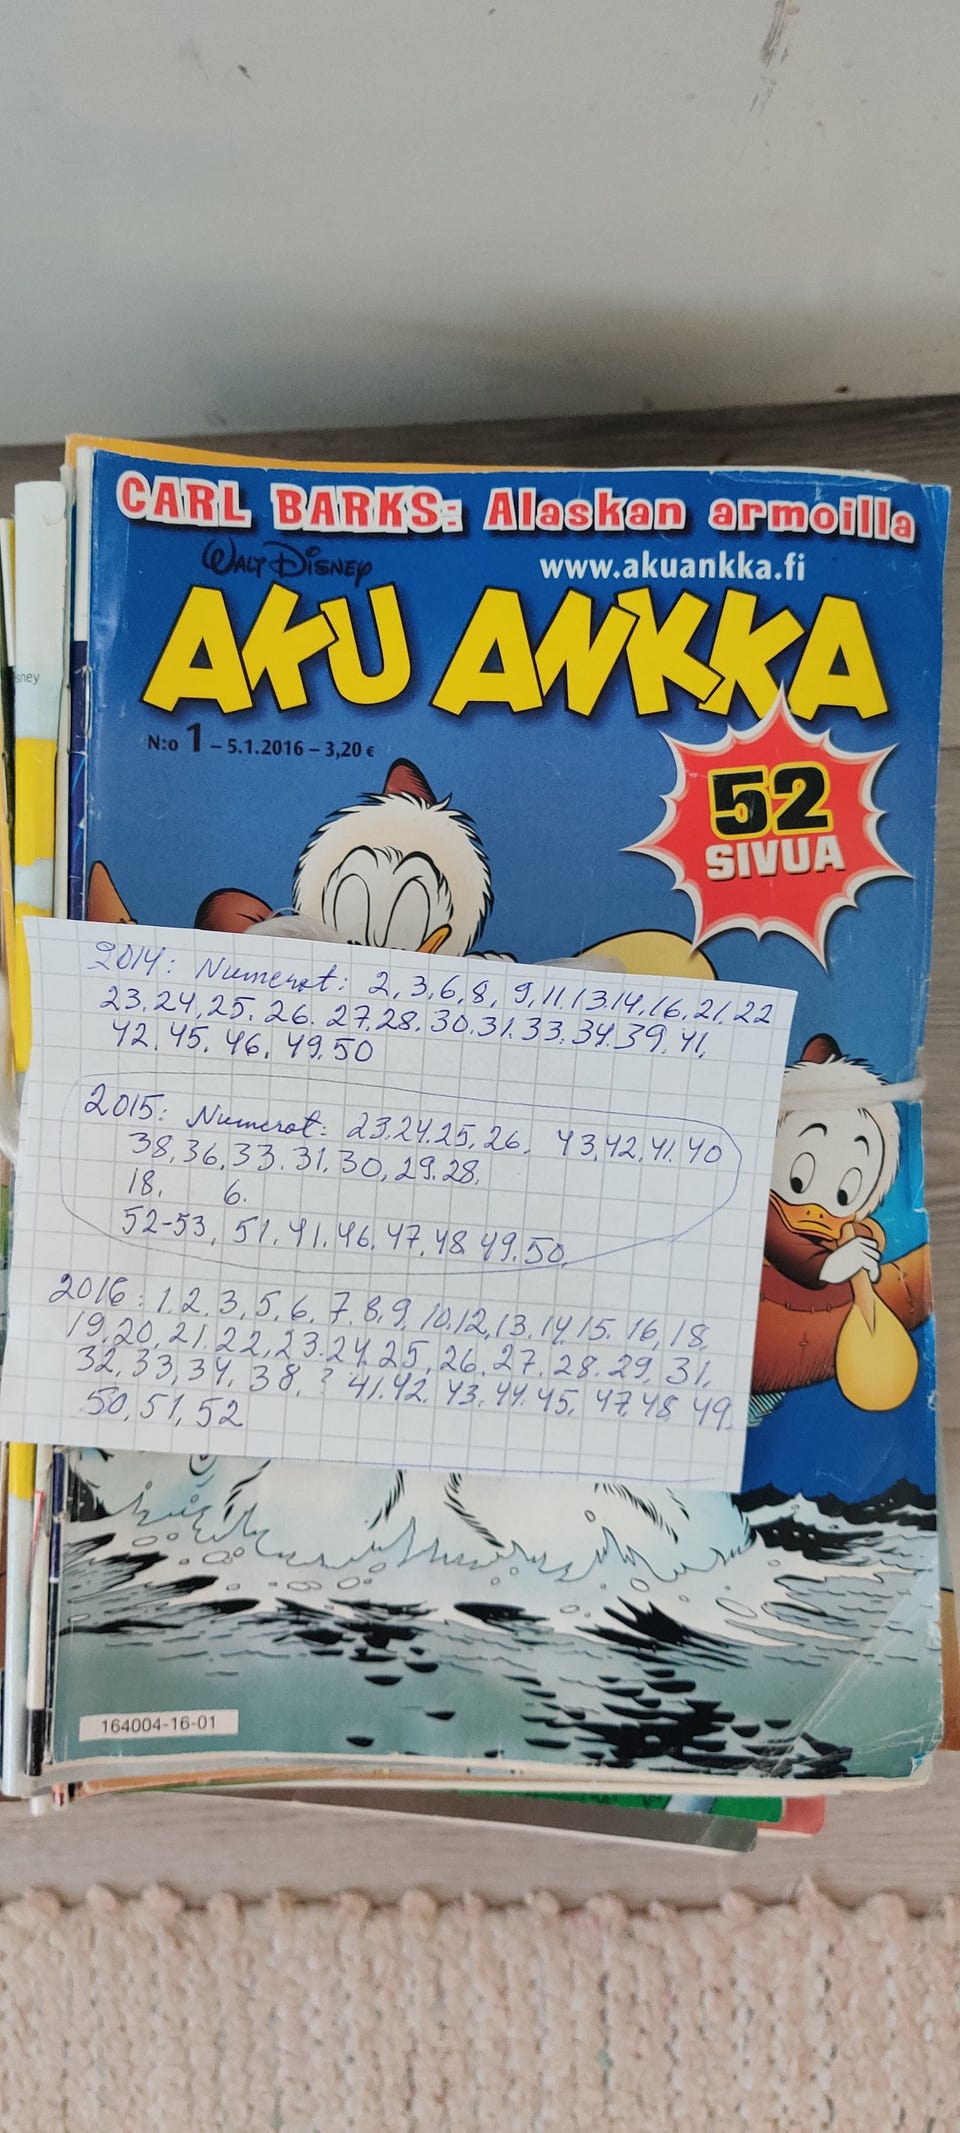 CARL BARKS: Alaskan armoilla
WALT DISNEY
www.akuankka.fi
AKU ANKKA
N:o 1 – 5.1.2016 – 3,20 €
52
SIVUA
sney
2014: Numerot: 2, 3, 6, 8, 9, 11. 13. 14. 16, 21. 22
23. 24, 25. 26. 27. 28. 30. 31. 33. 34. 39. 41.
42. 45. 46. 49. 50
2015: Numerot: 23. 24. 25, 26. 43, 42, 41. 40
38, 36, 33. 31. 30, 29. 28.
18. 6.
52-53, 51. 41. 46. 47. 48 49. 50.
2016: 1. 2. 3, 5, 6. 7. 8. 9, 10. 12, 13. 14. 15. 16, 18.
19. 20, 21. 22, 23. 24. 25, 26. 27. 28. 29, 31,
32, 33, 34, 38, ? 41. 42. 43, 44. 45, 47. 48. 49.
50, 51, 52
164004-16-01